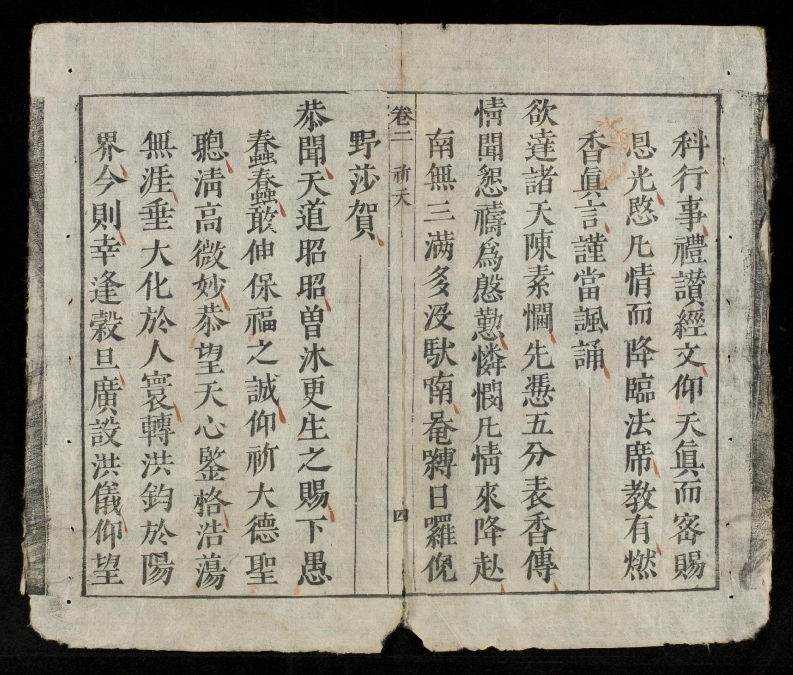 科行事禮讚經文仰天眞而宻賜
恩光愍凡情而降臨法席教有燃
香眞言謹當諷誦
欲達諸天陳素悃先憑五分表香傳
情聞懇禱爲慇懃憐憫凡情來降赴
南無三滿多没馱喃菴嚩日囉倪
卷二 祈天 四
野莎賀
恭聞天道昭昭曽沐更生之賜下愚
蠢蠢敢伸保福之誠仰祈大德聖
聰清高微妙恭望天心鑒格浩蕩
無涯垂大化於人寰轉洪鈞於陽
界今則幸逢榖旦廣設洪儀仰望